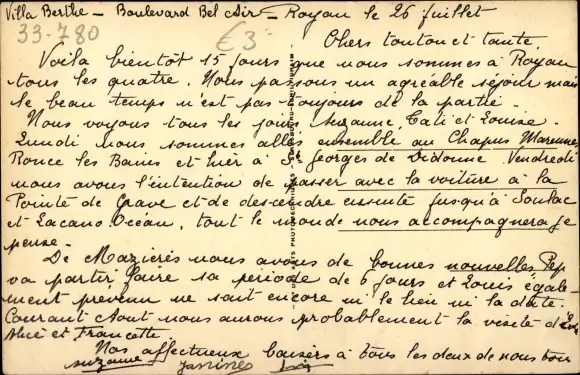 Villa Berthe – Boulevard Bel Air – Royan le 26 juillet
33-780
€3-
Chers tonton et tante,
Voila bientôt 15 jours que nous sommes à Royan
tous les quatre. Nous passons un agréable séjour mais
le beau temps n'est pas toujours de la partie.
Nous voyons tous les jours Suzanne, Cali et Louise.
Lundi nous sommes allés ensemble au Chapus Marennes
Ronce les Bains et hier à St Georges de Didonne Vendredi
nous avons l'intention de passer avec la voiture à la
Pointe de Grave et de descendre ensuite jusqu'à Soulac
et Lacano Océan, tout le monde nous accompagnera je
pense.
De Mazières nous avons de bonnes nouvelles, Pep
va partir faire sa période de 6 jours et Louis égale-
ment prévenu ne sait encore ni le lieu ni la date.
Courant Aout nous aurons probablement la visite d'
Alice et Francette
Nos affectueux baisers à tous les deux de nous tous
Suzanne Janine